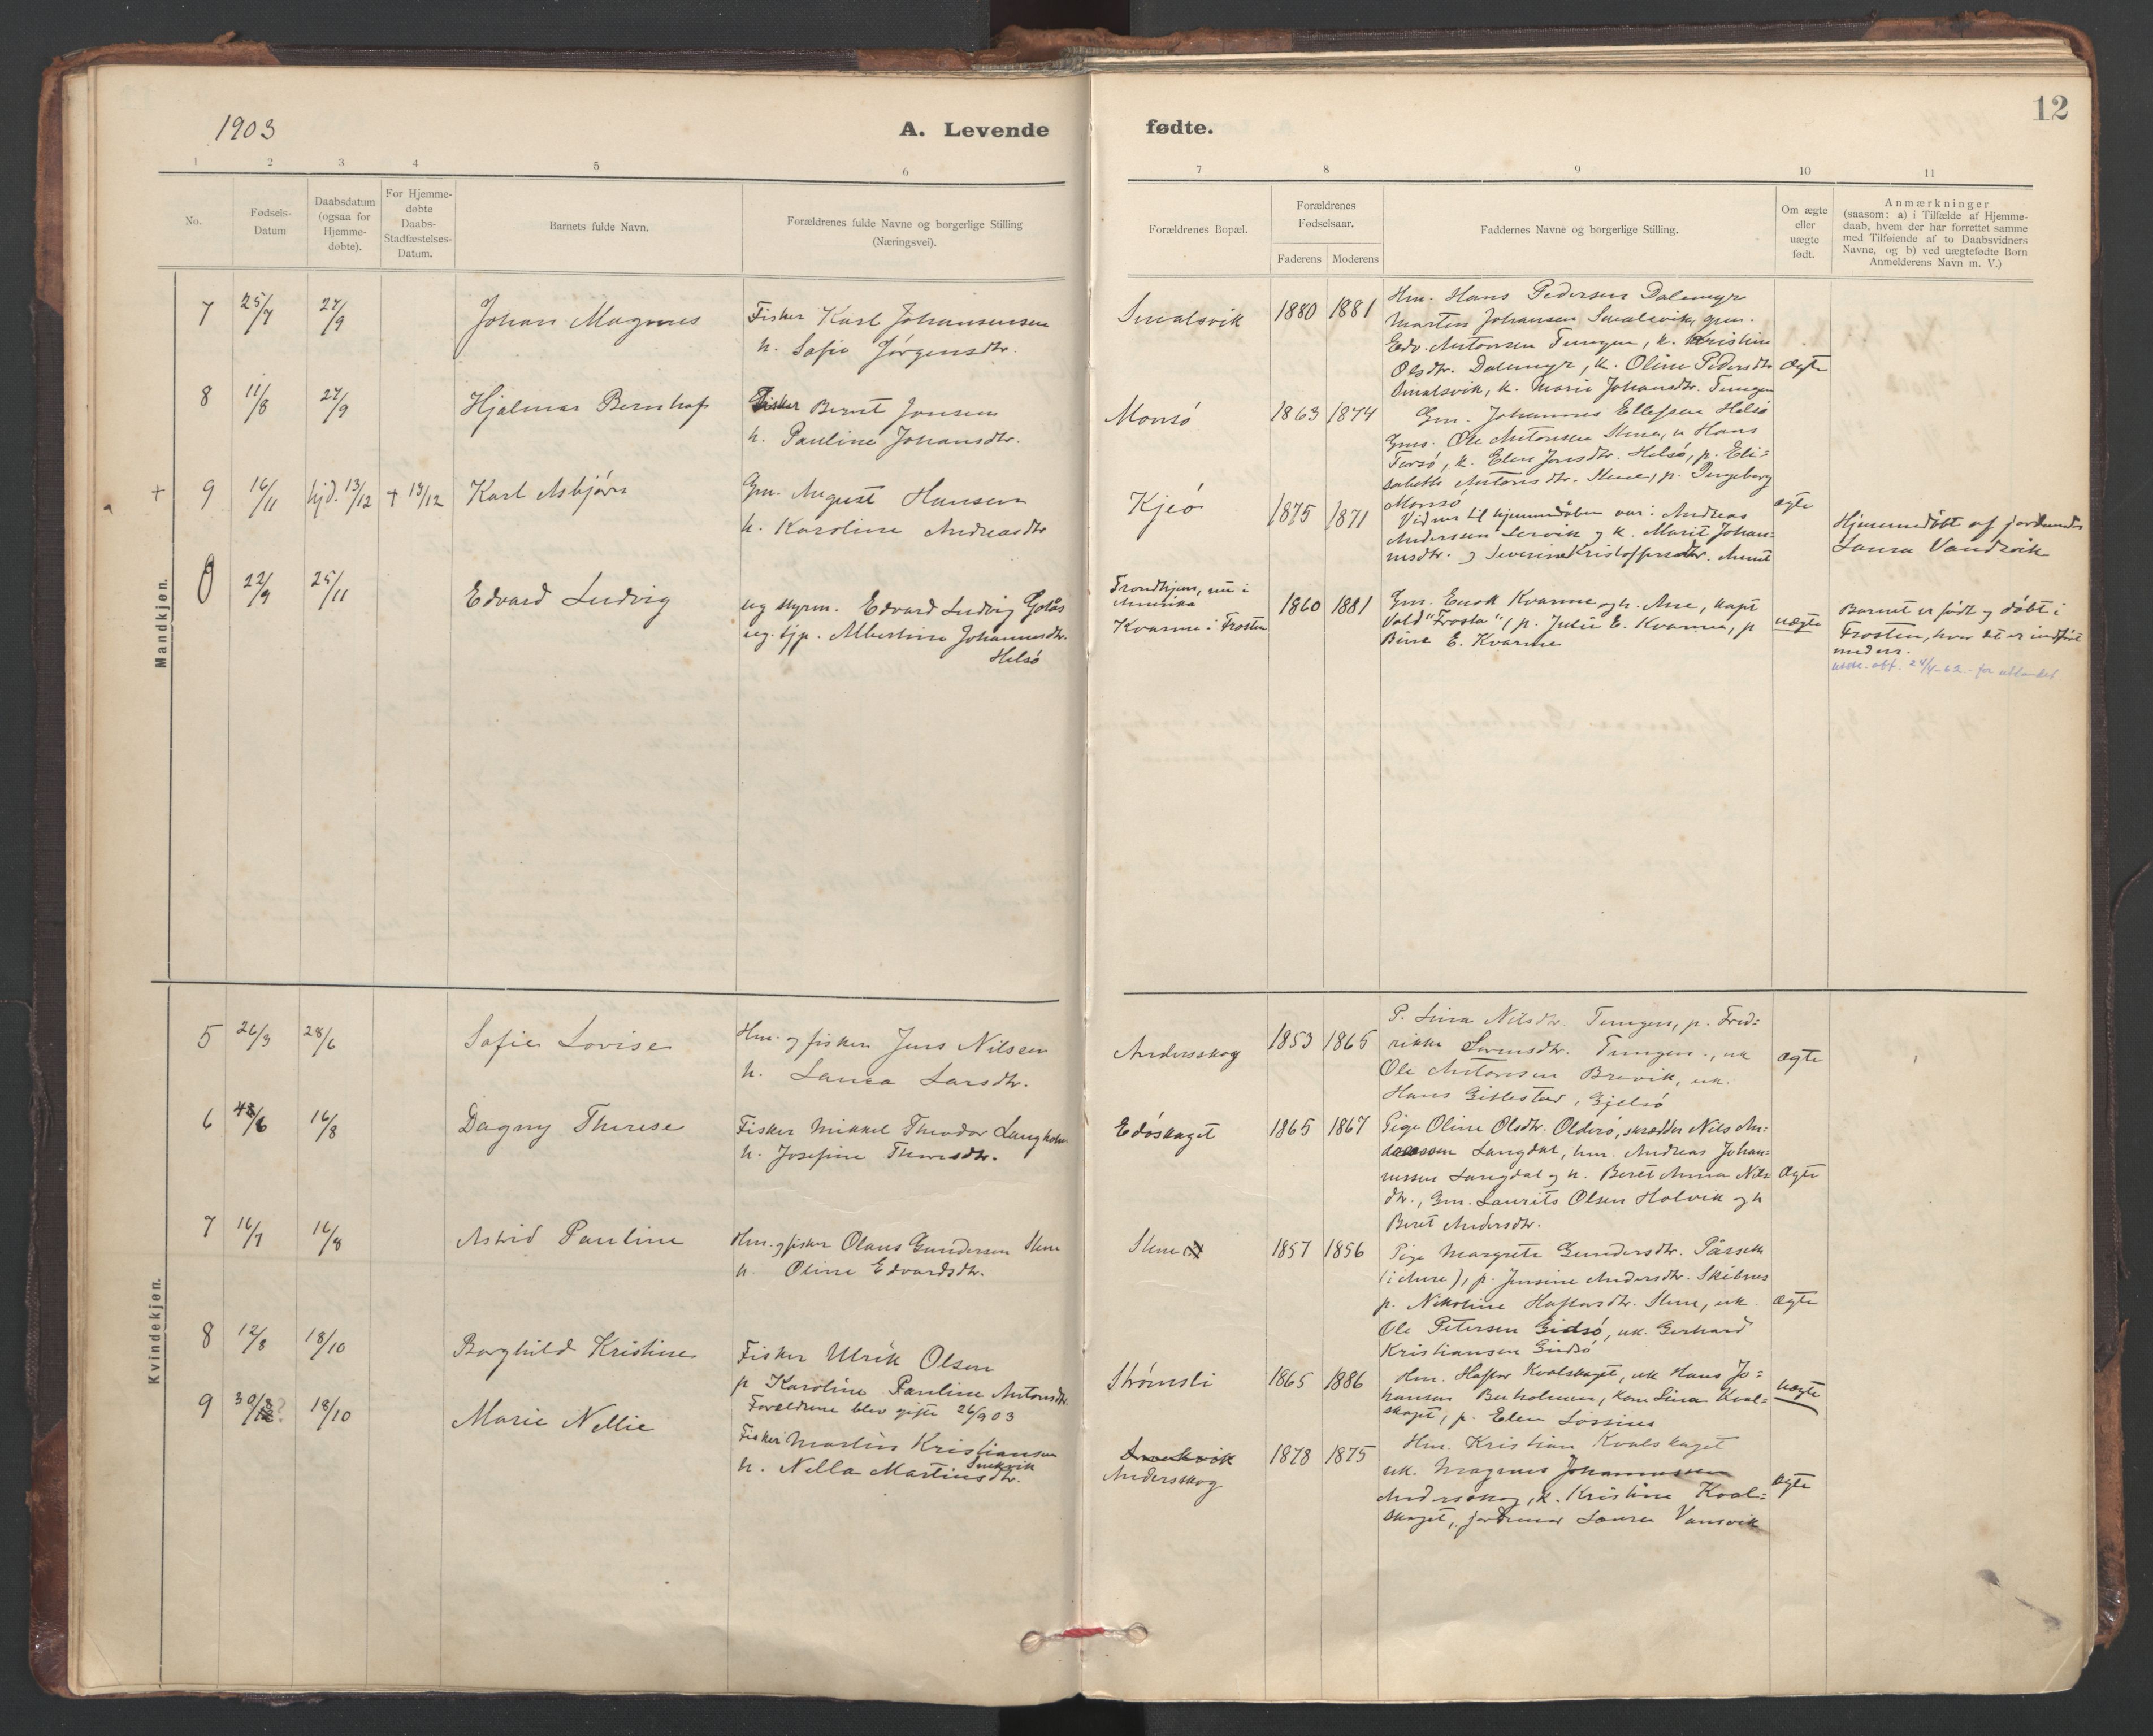 12
1903
A. Levende fødte.
1 2 3 4 5 6 7 8 9 10 11
No.
Fødsels-
Datum
Daabsdatum
(ogsaa for
Hjemme-
døbte).
For Hjemme-
døbte
Daabs-
Stadfæstelses-
Datum.
Barnets fulde Navn.
Forældrenes fulde Navne og borgerlige Stilling
(Næringsvei).
Forældrenes Bopæl.
Forældrenes
Fødselsaar.
Faderens Moderens
Faddernes Navne og borgerlige Stilling.
Om ægte
eller
uægte
født.
Anmærkninger
(saasom: a) i Tilfælde af Hjemme-
daab, hvem der har forrettet samme
med Tilføiende af to Daabsvidners
Navne, og b) ved uægtefødte Børn
Anmelderens Navn m. V.)
Mandkjøn.
7 25/7 27/9 Johan Magnus
Fisker Karl Johansensen
h. Sofie Jørgensdtr.
Smalsvik 1880 1881
Hm. Hans Pedersen Dalemyr
Martin Johansen Smalsvik, gm.
Edv. Antonsen Tungen, k. Kristine
Olsdtr. Dalemyr, k. Oline Pedersdtr
Smalsvik, k. Marie Johansdtr. Tungen
ægte
8 11/8 27/9 Hjalmar Bernhof
Fisker Bernt Jonsen
h. Pauline Johansdtr.
Monsø 1863 1874
Gm. Johannes Ellefsen Helsø
Gms. Ole Antonsen Stene, u Hans
Forsø, k. Elen Jonsdtr. Helsø, p. Eli=
sabeth Antonsdtr. Stene, p. Ingeborg
Monsø
ægte
+ 9 16/11 hjd. 13/12 + 13/12 Karl Asbjørn
Gm. August Hansen
h. Karoline Andreasdtr
Kjeø 1875 1871
Vidner til hjemmedåben var: Andreas
Anderssen Lervik og k. Marit Johan=
nesdtr. og Severine Kristoffersdtr. Aunet
Hjemmedøbt af jordmoder
Laura Vandsvik
0 22/9 25/11 Edvard Ludvig
ug styrm. Edvard Ludvig Golås
ug. tjp. Albertine Johannesdtr.
Helsø
Trondhjem, nu i
Amerika
Kvarme i Frosten
1860 1881
Gm. Enok Kvarme og h. Ane, kapt
Vold "Frosta", p. Julie E. Kvarme, p
Bine E. Kvarme
uægte
Barnet er født og døbt i
Frosten, hvor det er indført
under.
utskr. att. 24/4-62 - for utlandet
Kvindekjøn.
5 26/3 28/6 Sofie Lovise
Hm. og fisker Jens Nilsen
h. Laura Larsdtr.
Andersskog 1853 1865
P. Lina Nilsdtr. Tungen, p. Fred=
rikke Sorensdtr. Tungen., uk
Ole Antonsen Brevik, uk.
Hans Gillestad, Gjelsø
ægte
6 /6 16/8 Dagny Therese
Fisker Mikkel Theodor Langholm
h. Josefine Thoresdtr.
Edøskaget 1865 1867
Pige Oline Olsdtr. Olderø, skrædder Nils An=
dreassen Langdal, hm. Andreas Johan=
nessen Langdal og h. Beret Anna Nils
dtr., Gm. Laurits Olsen Holvik og h
Beret Andersdtr.
ægte
7 16/7 16/8 Astrid Pauline
Hm. og fisker Olaus Gundersen Stene
h. Oline Edvardsdtr.
Stene 1857 1856
Pige Margrete Gundersdtr.
(i Aure), p. Jensine Andersdtr. Skibnes
p. Nikoline Haftorsdtr. Stene, uk.
Ole Petersen Gidsø, uk. Gerhard
Kristiansen Gidsø
ægte
8 12/8 18/10 Borghild Kristine
Fisker Ulrik Olsen
p Karoline Pauline Antonsdtr.
Forældrene blev gifte 26/9 03
Strømsli 1865 1886
Hm. Haftor Kvalskaget, uk Hans Jo=
hansen Burholmen, kone Lina Kval=
skaget, p. Elen
uægte
9 30/8? 18/10 Marie Nellie
Fisker Martin Kristiansen
Smevik
h. Nella Martinsdtr.
Andersskog
1878 1875
Hm. Kristian Kvalskaget
uk. Magnus Johannessen
Andersskog, k. Kristine Kval=
skaget, jordmor Laura Vansvik
ægte